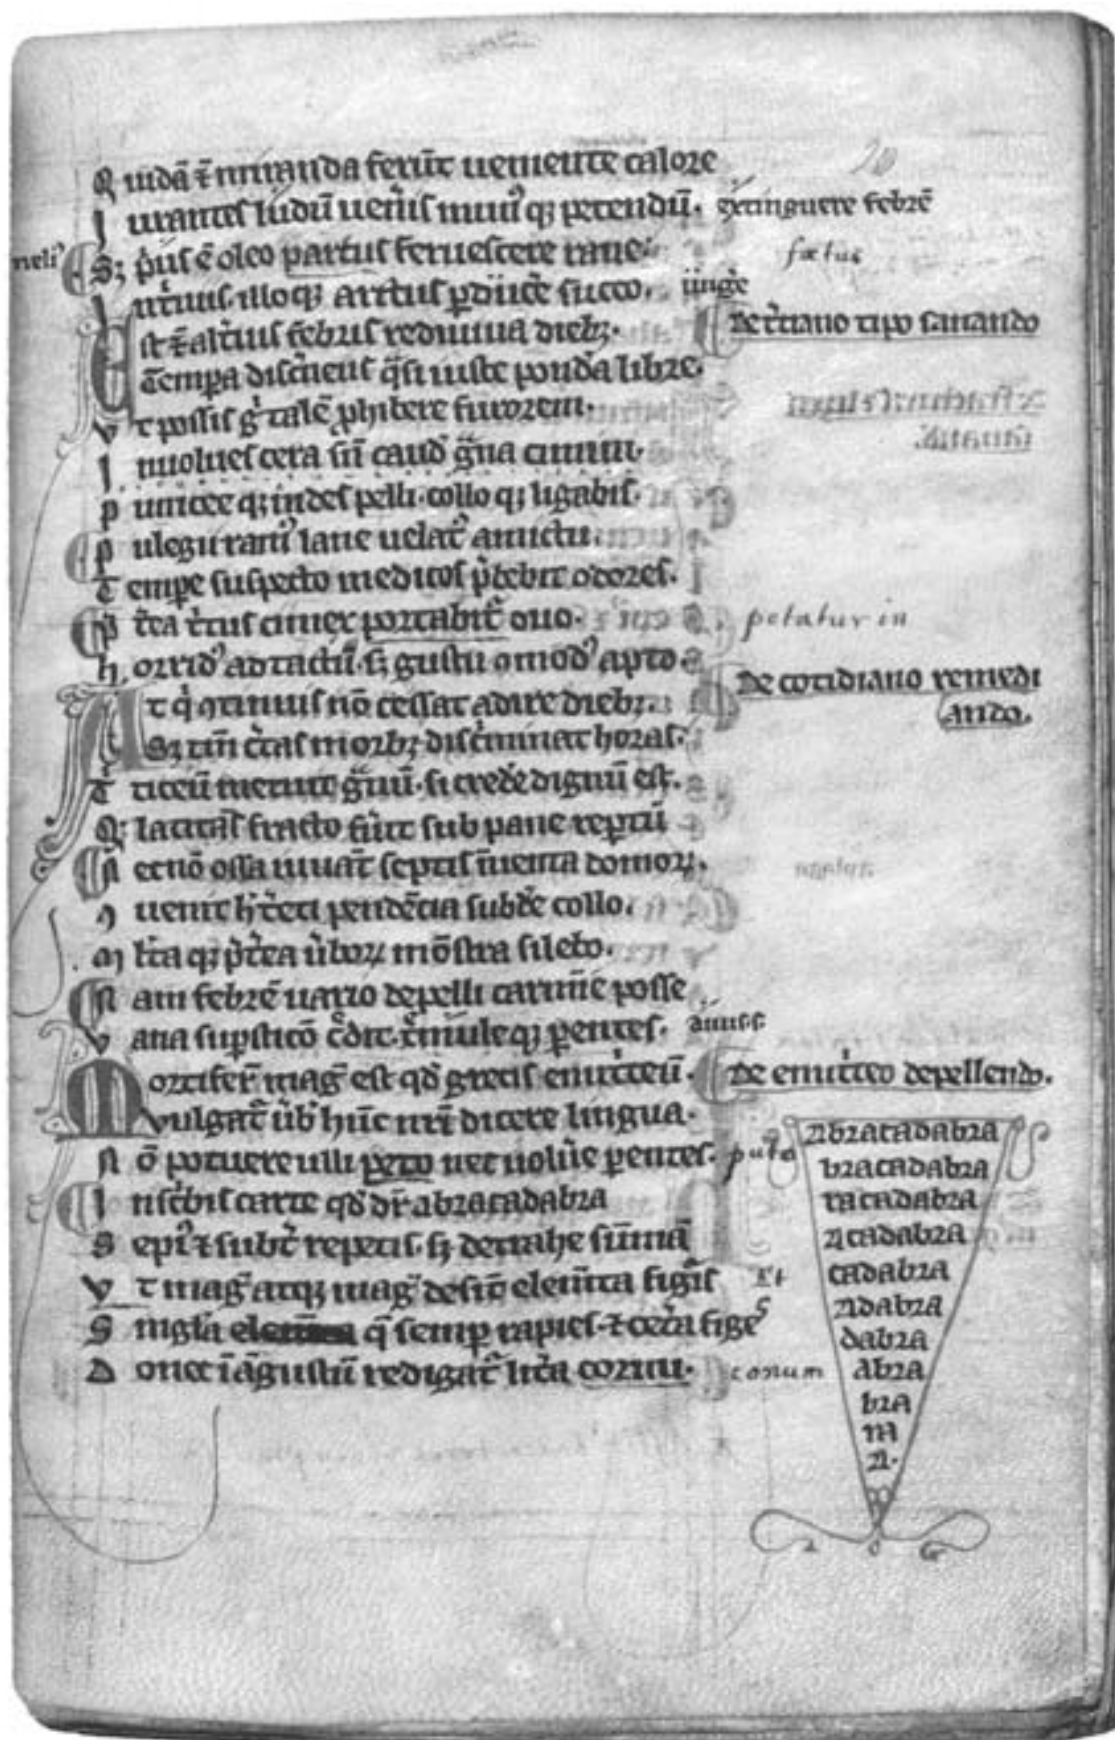 Quidā ē miranda ferūt uemente calore
Iurantes ludū uen̄is muu᷒ qꝫ petendū. extinguere febrē
Sꝫ p̄us ē oleo partus feruescere rane fœtus
Int̄uus illo qꝫ artus ꝑdūce succo. iūgē
Est ⁊ alt̄ius febris rediuiua diebꝫ. De t̄tiano tipo sanando
Tempa disc̄nens q̄si iuste pond̄a libre.
Vt possis g̊ talē ꝓhibere furorem.
Inuolues cera sn̄ caud g̊na cimini.
Puniceeqꝫ indes pelli. colloqꝫ ligabis.
Pulegii ram᷒ lane uelat᷑ amictu
Tempe suspecto medicos p̄bebit odores.
P̄tea t̄tus cimex portabit᷑ ouo. potatur in
Horrid᷒ ad tactū. sꝫ gustu ōmod᷒ apto
At q̄ ꝯtinuis nō cessat adire diebꝫ. De cotidiano remedi
ando.
Sꝫ tn̄ c̄tas morbꝫ disc̄minat horas.
Ticeū metuit g̊uiū. si crede dignū est.
Q; latitās fracto fūit sub pane reptū
Nec nō ossa iuuāt septis īuenta domoꝝ.
ꝯuenit h̄ t̄eti pendētia subdē collo.
Ml̄ta qꝫ p̄t̄ea ūboꝝ mōstra silebo.
Nam febrē uario depelli carmīe posse
Vana suꝑsticō c̄dit. t̄muleqꝫ ꝑentes. anus s
Mortifer᷒ mag̊ est qd̄ grecis emit̄teū. De emit̄teo depellendo.
Vulgat᷑ ūb᷒ hūc nr̄i dicere lingua.
Nō potuere ulli peto nec uolūe ꝑentes. puto
Insc̄bis carte qd̄ dr̄ abracadabra
Sepi᷒ ⁊ subt᷑ repetis. sꝫ detrahe sūmā
Vt mag̊ atqꝫ mag̊ desīt elem̄ta fig̊is Et
Singla q̄ semꝑ rapies. ⁊ cet̄a figes
Donec ī āgustū redigat᷑ lit̄a cornu. conum
Abracadabra
bracadabra
racadabra
acadabra
cadabra
adabra
dabra
abra
bra
ra
a.